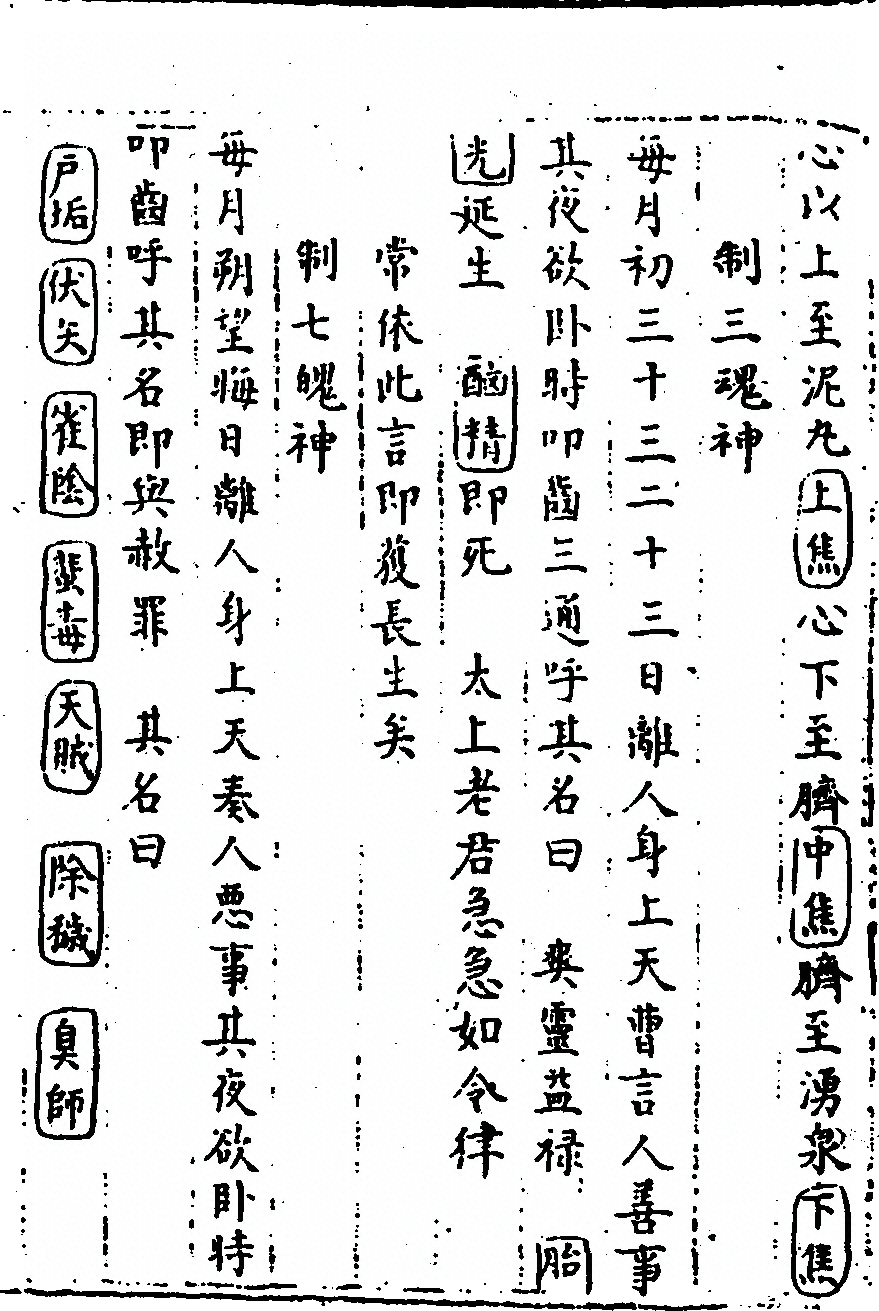 心以上至泥丸上焦心下至臍中焦臍至湧泉下焦
制三魂神
每月初三十三二十三日離人身上天曹言人善事
其夜欲卧時叩齒三通呼其名曰 爽靈益禄 胎
光延生 幽精即死 太上老君急急如令律
常依此言即獲長生矣
制七魄神
每月朔望晦日離人身上天奏人悪事其夜欲卧時
叩齒呼其名即與赦罪 其名曰
戸垢 伏矢 雀陰 蜚毒 天賊 除穢 臭師